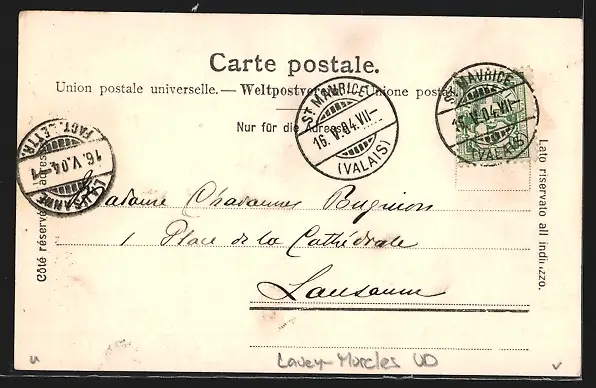 Carte postale.
Union postale universelle. — Weltpostverein — Unione postale
Nur für die Adresse
ST MAURICE
16.V.04.VII—
(VALAIS)
ST MAURICE
16.V.04.VII—
(VALAIS)
LAUSANNE
16.V.04.
FACT. LETTR.
Côté réservé à l'adresse
Lato riservato all indirizzo.
Madame Chavannes Bugnion
1 Place de la Cathédrale
Lausanne
Lavey-Morcles VD